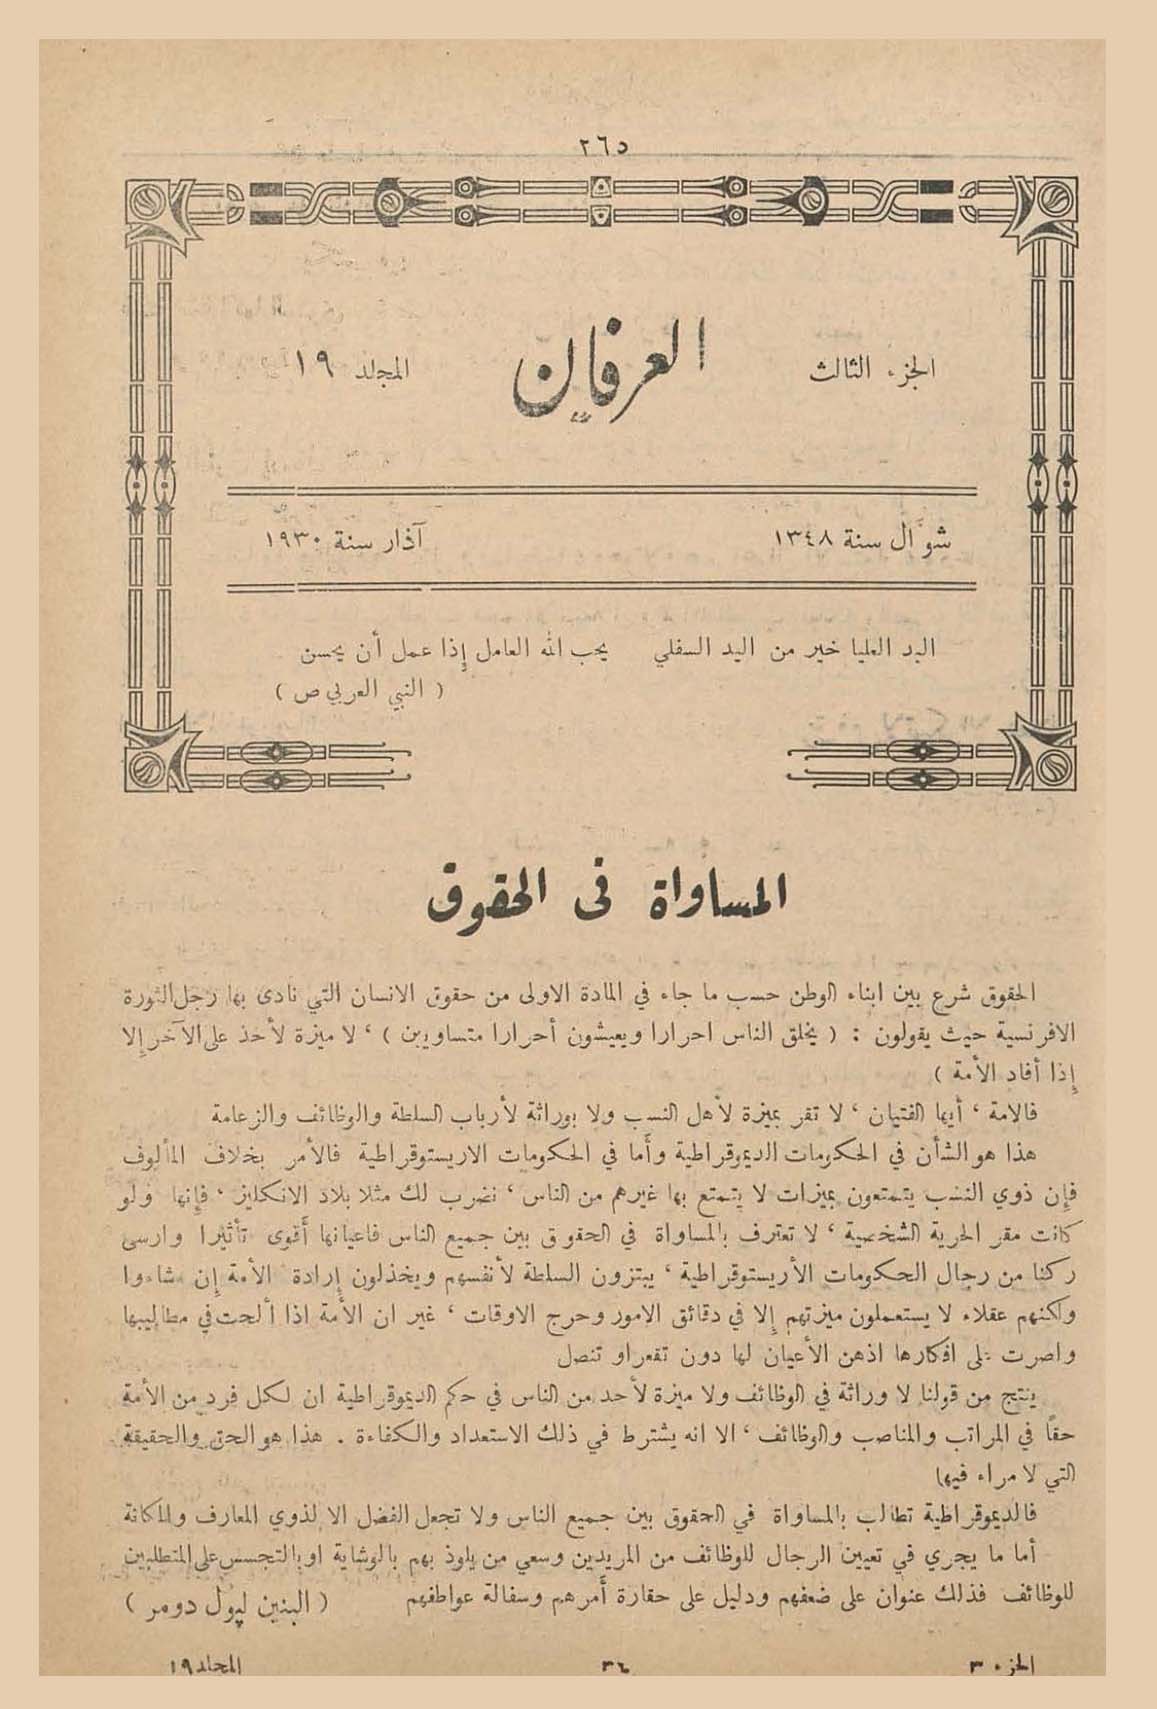 ٢٦٥
الجزء الثالث
العرفان
المجلد ١٩
شوَّال سنة ١٣٤٨
آذار سنة ١٩٣٠
اليد العليا خير من اليد السفلي يحب الله العامل إذا عمل أن يحسن
( النبي العربي ص )
المساواة في الحقوق
الحقوق شرع بين ابناء الوطن حسب ما جاء في المادة الاولى من حقوق الانسان التي نادى بها رجل الثورة
الافرنسية حيث يقولون : ( يخلق الناس احرارا ويعيشون أحرارا متساويين ) ، لا ميزة لأحد على الآخر إلا
إذا أفاد الأمة )
فالامة ، أيها الفتيان ، لا تقر بميزة لأهل النسب ولا بوراثة لأرباب السلطة والوظائف والزعامة
هذا هو الشأن في الحكومات الديموقراطية وأما في الحكومات الاريستوقراطية فالأمر بخلاف المألوف
فإن ذوي النسب يتمتعون بميزات لا يتمتع بها غيرهم من الناس ، نضرب لك مثلا بلاد الانكليز ، فإنها ولو
كانت مقر الحرية الشخصية ، لا تعترف بالمساواة في الحقوق بين جميع الناس فاعيانها أقوى تأثيرا وارسى
ركنا من رجال الحكومات الأريستوقراطية ، يبتزون السلطة لأنفسهم ويخذلون إرادة الأمة إن شاءوا
ولكنهم عقلاء لا يستعملون ميزتهم إلا في دقائق الامور وحرج الاوقات ، غير ان الأمة اذا ألحت في مطاليبها
واصرت على افكارها اذهن الأعيان لها دون تقعر او تنصل
ينتج من قولنا لا وراثة في الوظائف ولا ميزة لأحد من الناس في حكم الديموقراطية ان لكل فرد من الأمة
حقاً في المراتب والمناصب والوظائف ، الا انه يشترط في ذلك الاستعداد والكفاءة . هذا هو الحق والحقيقة
التي لا مراء فيها
فالديموقراطية تطالب بالمساواة في الحقوق بين جميع الناس ولا تجعل الفضل الا لذوي المعارف والمكانة
أما ما يجري في تعيين الرجال للوظائف من المريدين وسعي من يلوذ بهم بالوشاية او بالتجسس على المتطلبين
للوظائف فذلك عنوان على ضعفهم ودليل على حقارة أمرهم وسفالة عواطفهم ( البنين لپول دومر )
الجزء ٣
٣٦
المجلد ١٩